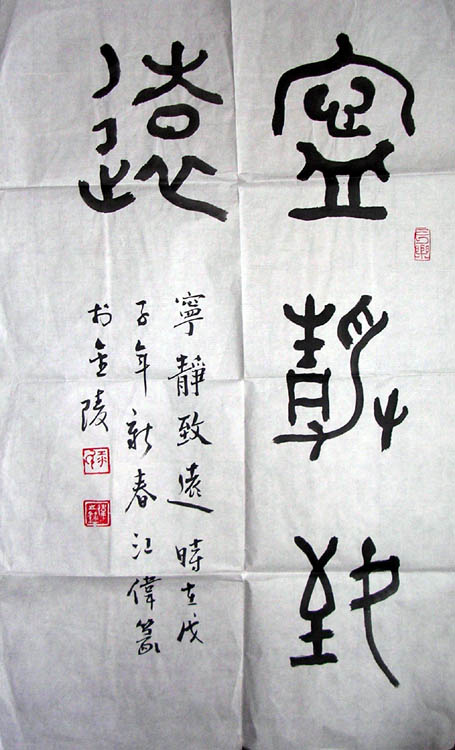 寧靜致
遠
寧靜致遠時在戊
子年新春江偉篆
於金陵